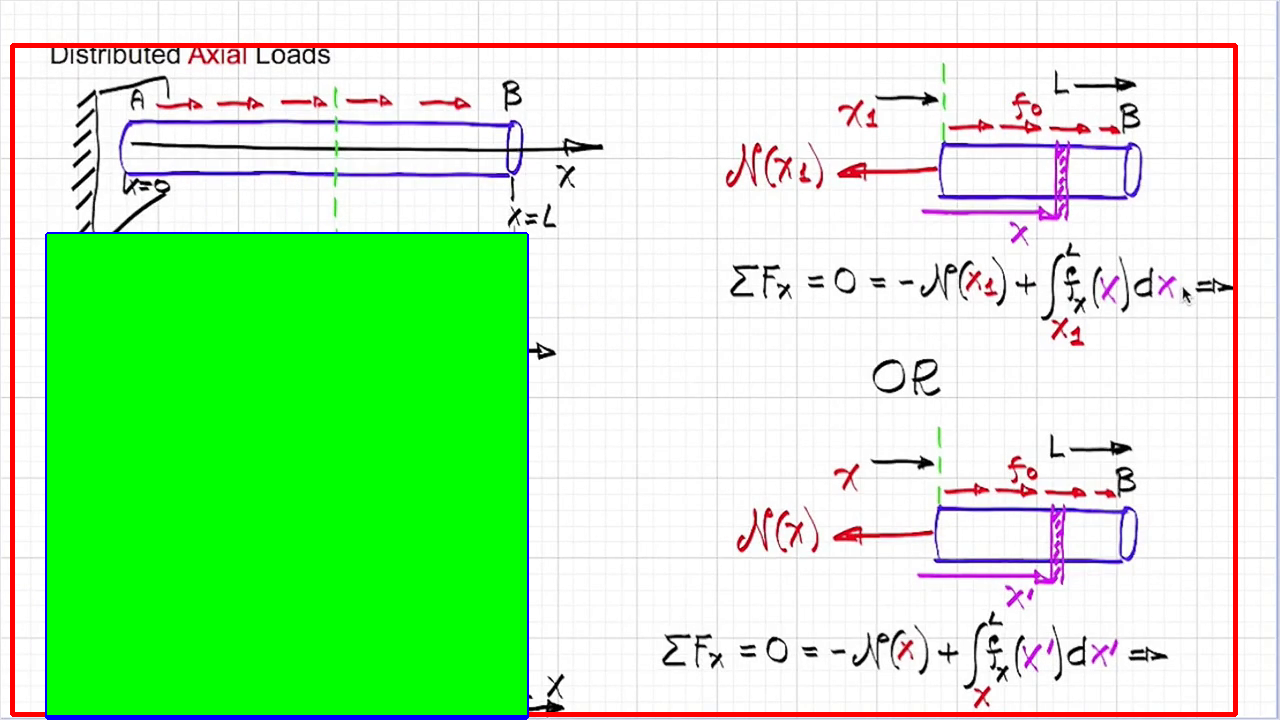 Distributed Axial Loads
A B
x=0 X
x=L
X
L
x1 f0 B
N(x1)
x
ΣFx = 0 = -N(x1) + ∫x1L fx(x)dx, ⇒
OR
L
x f0 B
N(x)
x'
ΣFx = 0 = -N(x) + ∫xL fx(x')dx' ⇒